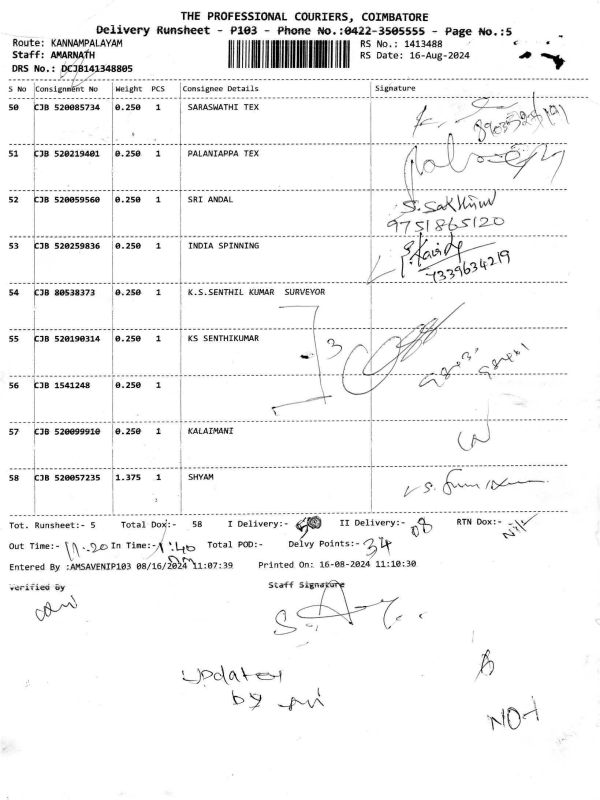 THE PROFESSIONAL COURIERS, COIMBATORE
Delivery Runsheet - P103 - Phone No.:0422-3505555 - Page No.:5
Route: KANNAMPALAYAM RS No.: 1413488
Staff: AMARNATH RS Date: 16-Aug-2024
DRS No.: DCJB141348805
S No Consignment No Weight PCS Consignee Details Signature
50 CJB 520085734 0.250 1 SARASWATHI TEX
51 CJB 520219401 0.250 1 PALANIAPPA TEX
52 CJB 520059560 0.250 1 SRI ANDAL S. Sakthivel
9751865120
53 CJB 520259836 0.250 1 INDIA SPINNING
7339634219
54 CJB 80538373 0.250 1 K.S.SENTHIL KUMAR SURVEYOR
55 CJB 520190314 0.250 1 KS SENTHIKUMAR 3
56 CJB 1541248 0.250 1
57 CJB 520099910 0.250 1 KALAIMANI
58 CJB 520057235 1.375 1 SHYAM
Tot. Runsheet:- 5 Total Dox:- 58 I Delivery:- II Delivery:- 08 RTN Dox:- Nil
Out Time:- 11.20 In Time:- 1:40 Total POD:- Delvy Points:- 34
Entered By :AMSAVENIP103 08/16/2024 11:07:39 Printed On: 16-08-2024 11:10:30
Verified By Staff Signature
updated
by